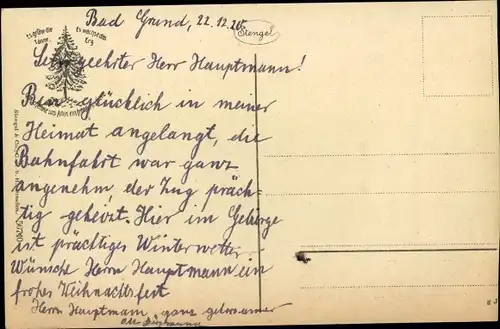 Bad Grund, 22.12.20.
Stengel
Es grüne die Tanne,
Es wachse das Erz
Sehr geehrter Herr Hauptmann!
Bin glücklich in meiner
Heimat angelangt, die
Bahnfahrt war ganz
angenehm der Zug präch-
tig geheizt. Hier im Gebirge
ist prächtiges Winterwetter
Wünsche Herrn Hauptmann ein
frohes Weihnachtsfest
Herrn Hauptmann, ganz gehorsamer
Stengel & Co., G.m.b.H., Dresden